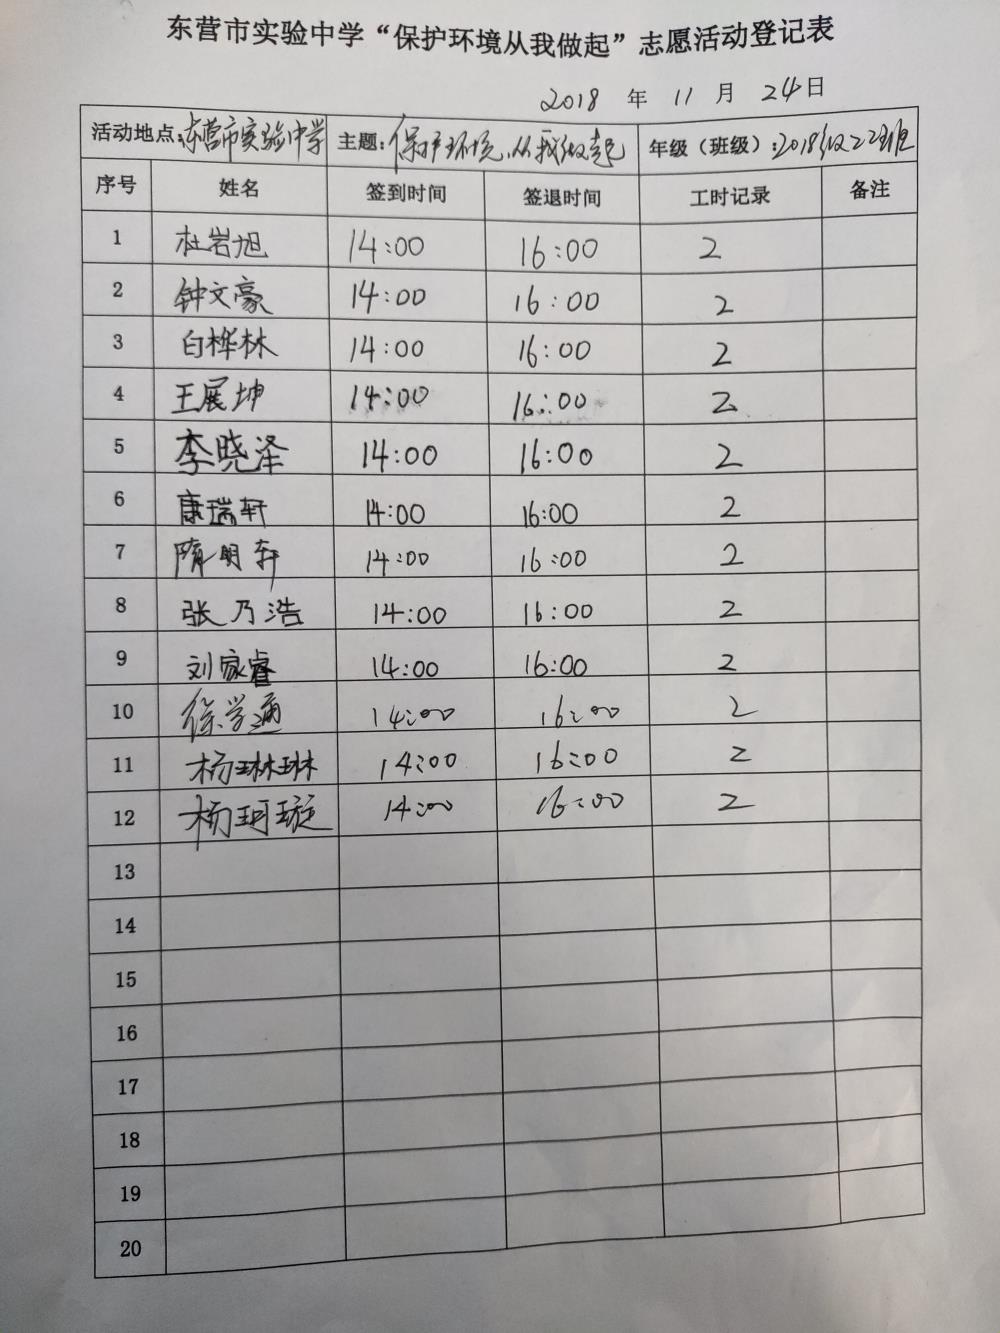 东营市实验中学“保护环境从我做起”志愿活动登记表
2018 年 11 月 24日
活动地点:东营市实验中学 主题:保护环境,从我做起 年级(班级):2018级22班
序号 姓名 签到时间 签退时间 工时记录 备注
1 杜岩旭 14:00 16:00 2
2 钟文豪 14:00 16:00 2
3 白桦林 14:00 16:00 2
4 王展坤 14:00 16:00 2
5 李晓泽 14:00 16:00 2
6 康瑞轩 14:00 16:00 2
7 隋明轩 14:00 16:00 2
8 张乃浩 14:00 16:00 2
9 刘家睿 14:00 16:00 2
10 徐学通 14:00 16:00 2
11 杨琳琳 14:00 16:00 2
12 杨珂璇 14:00 16:00 2
13
14
15
16
17
18
19
20